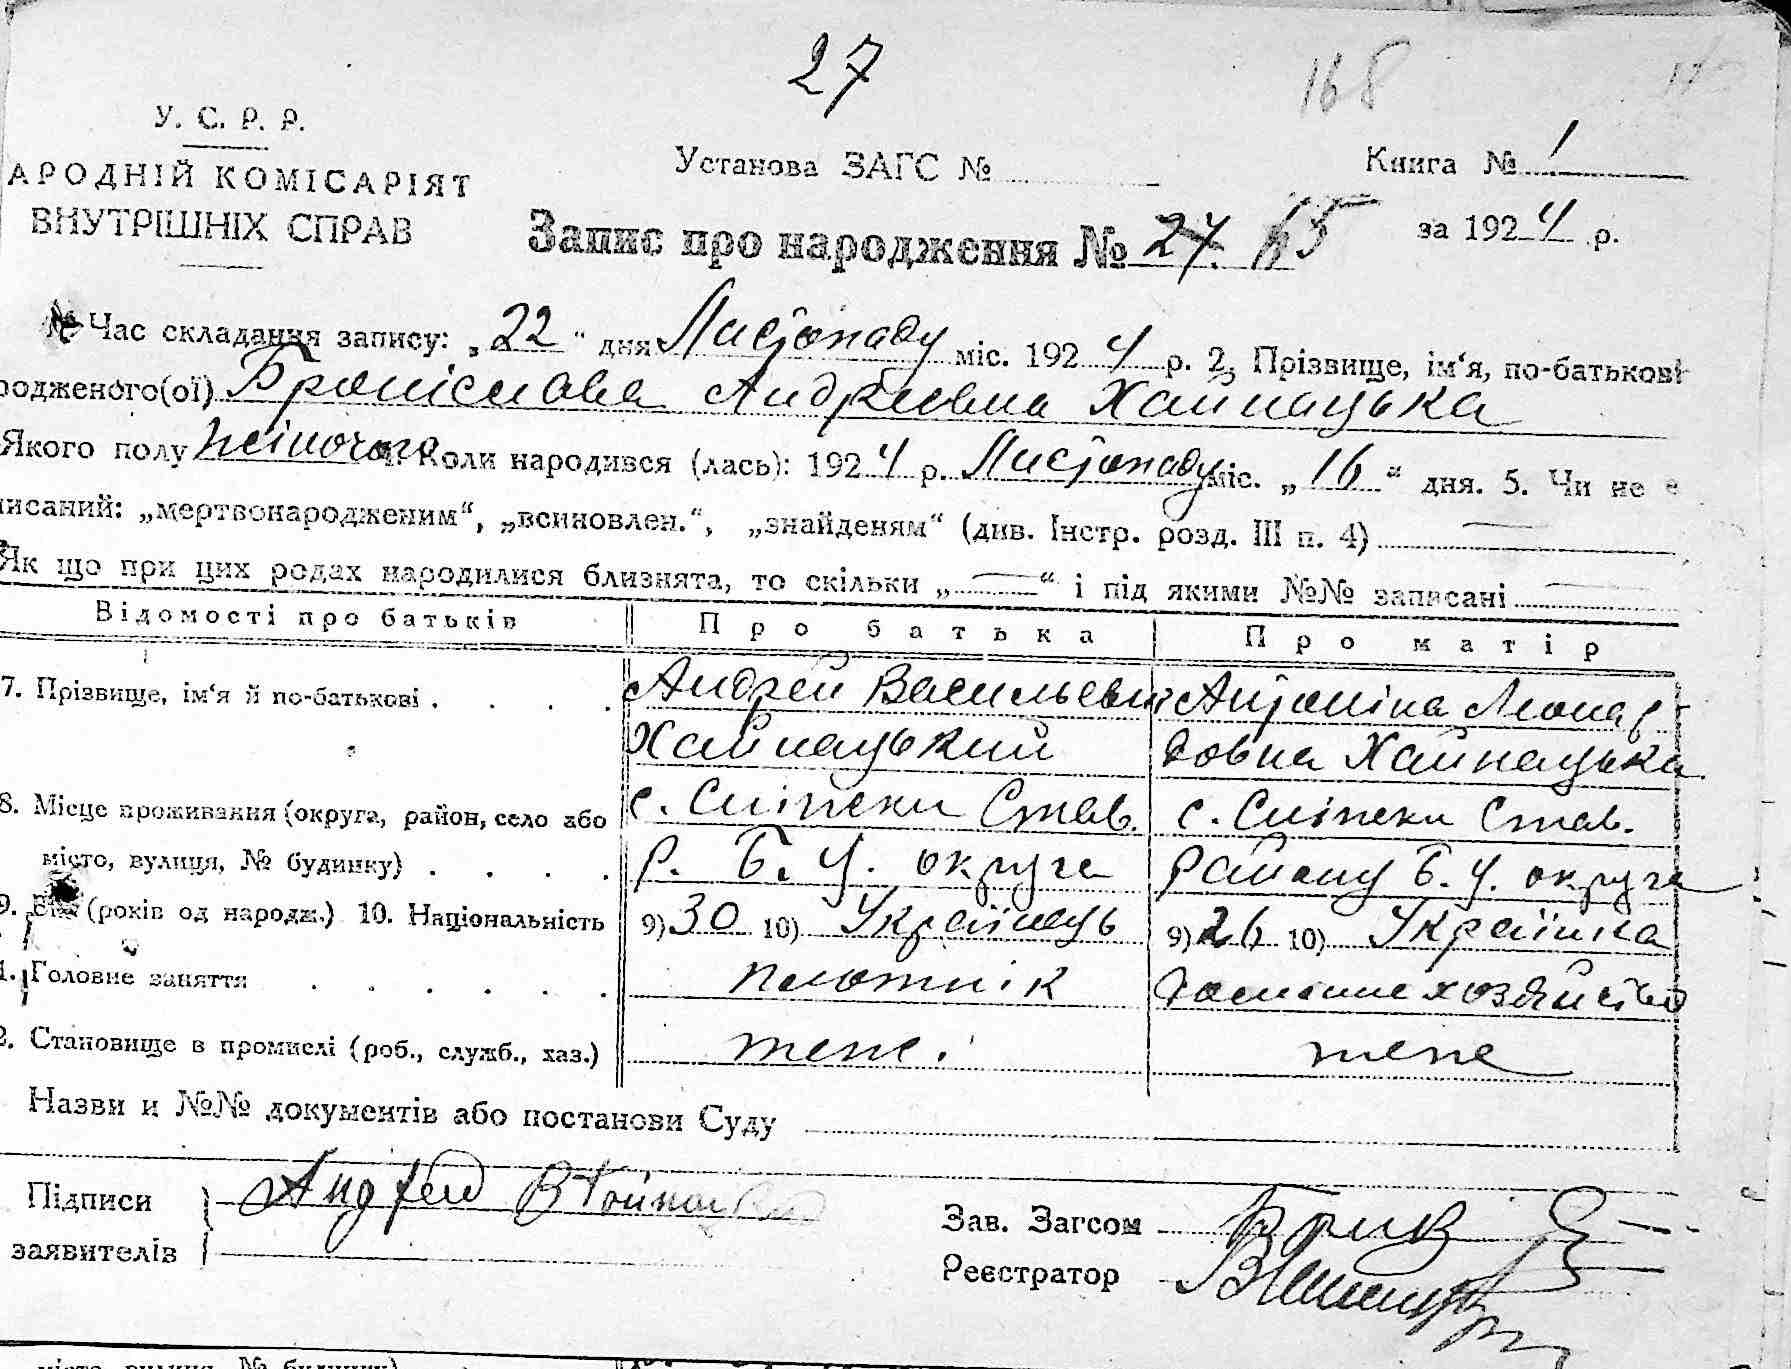 27
168
У. С. Р. Р.
АРОДНІЙ КОМІСАРІЯТ
ВНУТРІШНІХ СПРАВ
Установа ЗАГС №
Книга № 1
Запис про народження № 24. 65
за 1924 р.
Час складання запису: „22“ дня Листопаду міс. 1924 р. 2. Прізвище, ім‘я, по-батькові
родженого(ої) Броніслава Андреєвна Хайнацька
Якого полу жіночого 4. Коли народився (лась): 1924 р. Листопаду міс. „16“ дня. 5. Чи не є
писаний: „мертвонародженим“, „всиновлен.“, „знайденям“ (див. Інстр. розд. III п. 4)
Як що при цих родах народилися близнята, то скільки „—“ і під якими №№ записані —
Відомості про батьків Про батька Про матір
7. Прізвище, ім‘я й по-батькові . . . . Андрей Васильевич Антоніна Леонар
Хайнацький довна Хайнацька
8. Місце проживання (округа, район, село або с. Сніжки Став. с. Сніжки Став.
місто, вулиця, № будинку) . . . . р. Б. Ц. округа району Б. Ц. округа
9. Вік (років од народж.) 10. Національність 9) 30 10) Українець 9) 26 10) Українка
1. Головне заняття . . . . . . плотнік домашне хозяйство
2. Становище в промислі (роб., служб., хаз.) теже. теже
Назви и №№ документів або постанови Суду
Підписи Андрей В Хойнацкий
заявителів
Зав. Загсом
Реєстратор
місто, вулиця, № будинку)